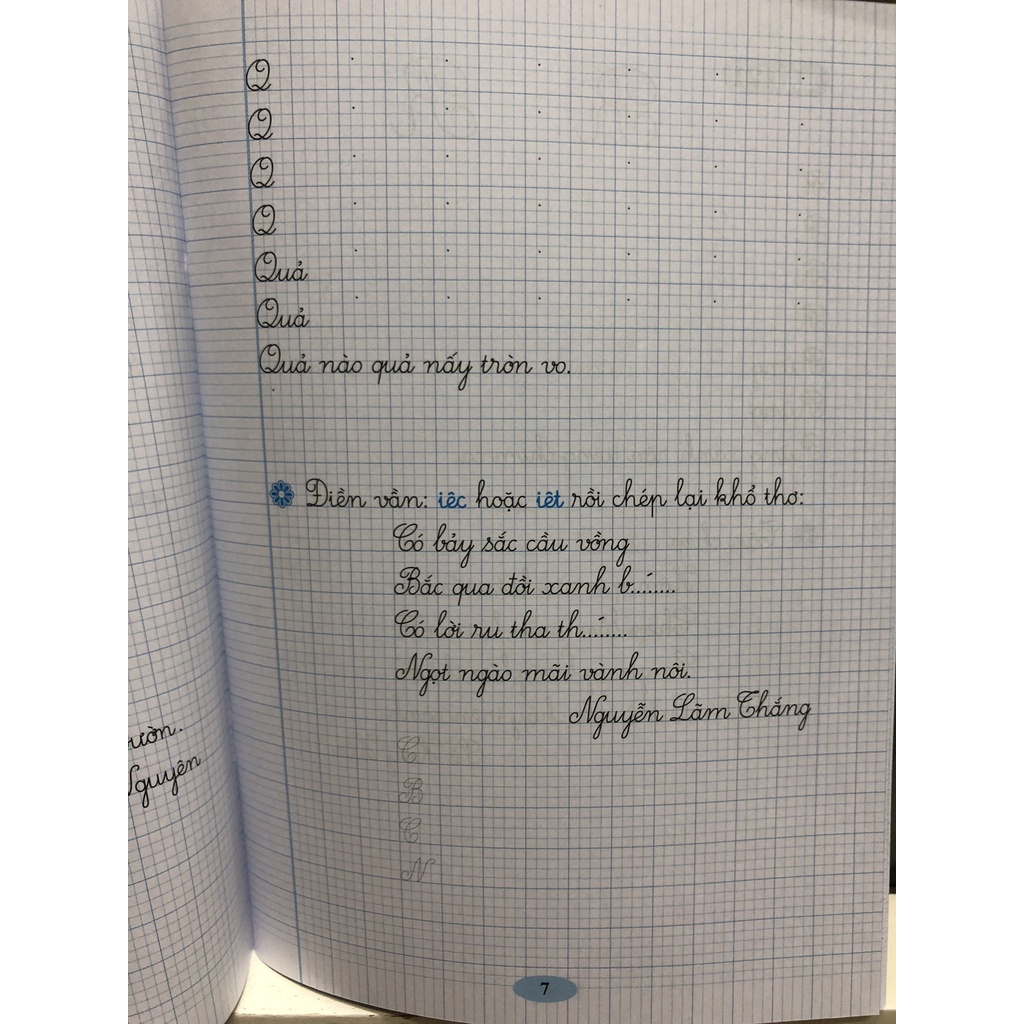 Q
Q
Q
Q
Quả
Quả
Quả nào quả nấy tròn vo.
Điền vần: iêc hoặc iêt rồi chép lại khổ thơ:
Có bảy sắc cầu vồng
Bắc qua đồi xanh b...´....
Có lời ru tha th...´....
Ngọt ngào mãi vành nôi.
Nguyễn Lãm Thắng
C
B
C
N
7
ườn.
Nguyên